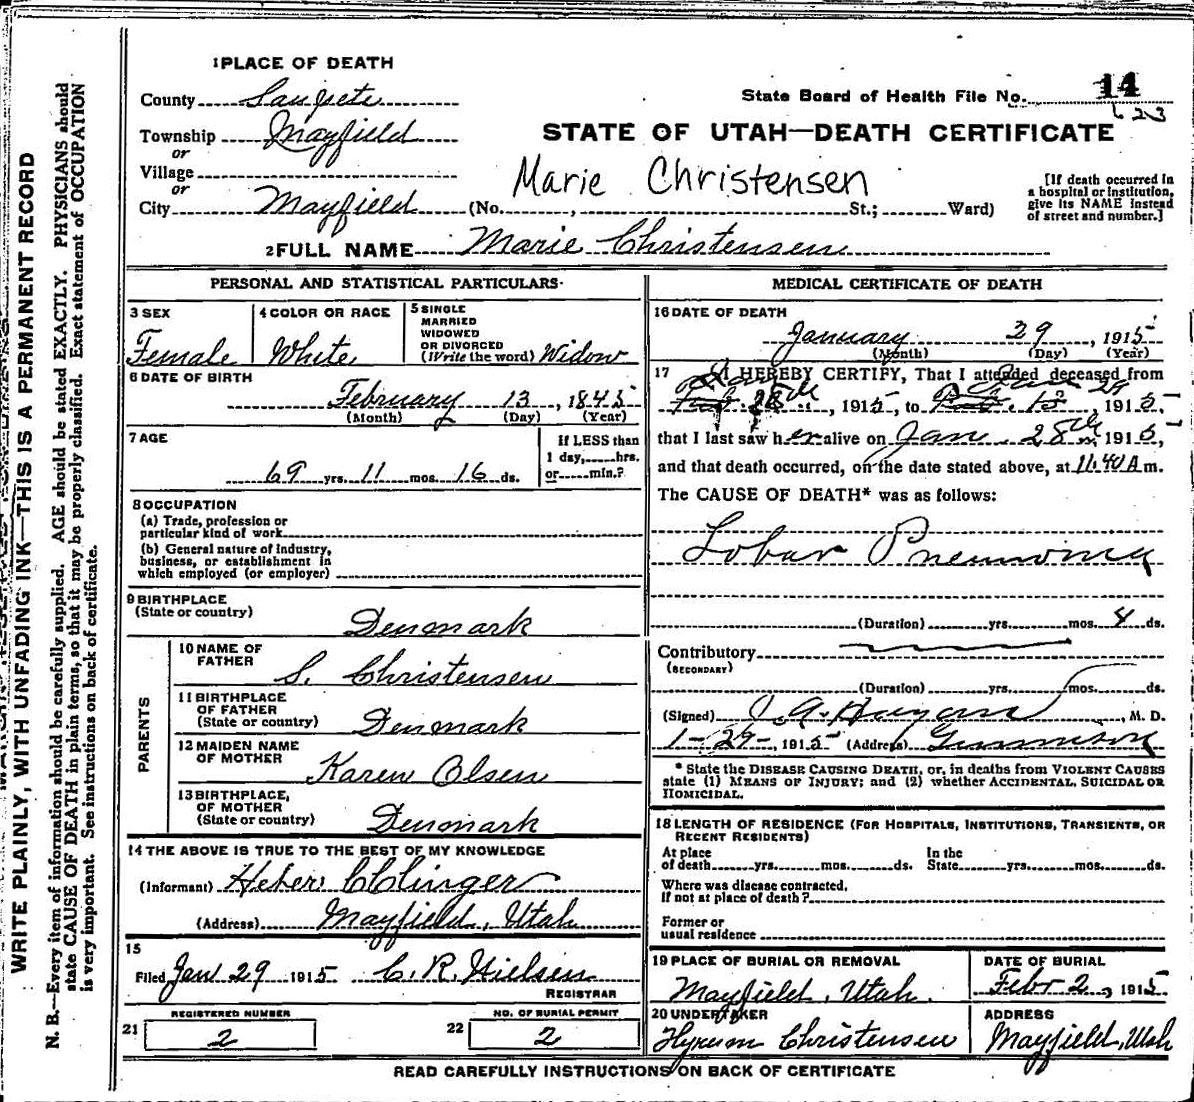 1 PLACE OF DEATH
County Sanpete
State Board of Health File No. 14
623
Township Mayfield
or
STATE OF UTAH—DEATH CERTIFICATE
Village
or
Marie Christensen
[If death occurred in a hospital or institution, give its NAME instead of street and number.]
City Mayfield (No. , St.; Ward)
2 FULL NAME Marie Christensen
PERSONAL AND STATISTICAL PARTICULARS
3 SEX
Female
4 COLOR OR RACE
White
5 SINGLE
MARRIED
WIDOWED
OR DIVORCED
(Write the word) Widow
6 DATE OF BIRTH
February 13, 1845
(Month) (Day) (Year)
7 AGE
69 yrs. 11 mos. 16 ds.
If LESS than
1 day, hrs.
or min.?
8 OCCUPATION
(a) Trade, profession or
particular kind of work
(b) General nature of Industry,
business, or establishment in
which employed (or employer)
9 BIRTHPLACE
(State or country)
Denmark
PARENTS
10 NAME OF
FATHER
S. Christensen
11 BIRTHPLACE
OF FATHER
(State or country) Denmark
12 MAIDEN NAME
OF MOTHER
Karen Olsen
13 BIRTHPLACE,
OF MOTHER
(State or country) Denmark
14 THE ABOVE IS TRUE TO THE BEST OF MY KNOWLEDGE
(Informant) Heber
(Address) Mayfield, Utah
15
Filed Jan 29 1915 C. R. Nielsen
REGISTRAR
REGISTERED NUMBER
21 2
NO. OF BURIAL PERMIT
22 2
MEDICAL CERTIFICATE OF DEATH
16 DATE OF DEATH
January 29, 1915
(Month) (Day) (Year)
17 I HEREBY CERTIFY, That I attended deceased from
Jan 28th, 1915, to Jan 29, 1915,
that I last saw her alive on Jan. 28th, 1915,
and that death occurred, on the date stated above, at 11.40 A m.
The CAUSE OF DEATH* was as follows:
Lobar Pneumonia
(Duration) yrs. mos. 4 ds.
Contributory
(SECONDARY)
(Duration) yrs. mos. ds.
(Signed) M. D.
1-29-, 1915 (Address) Gunnison
* State the DISEASE CAUSING DEATH, or, in deaths from VIOLENT CAUSES
state (1) MEANS OF INJURY; and (2) whether ACCIDENTAL, SUICIDAL OR
HOMICIDAL.
18 LENGTH OF RESIDENCE (FOR HOSPITALS, INSTITUTIONS, TRANSIENTS, OR
RECENT RESIDENTS)
At place
of death yrs. mos. ds.
In the
State yrs. mos. ds.
Where was disease contracted,
If not at place of death?
Former or
usual residence
19 PLACE OF BURIAL OR REMOVAL
Mayfield, Utah.
DATE OF BURIAL
Febr 2, 1915
20 UNDERTAKER
Hyrum Christensen
ADDRESS
Mayfield, Utah
READ CAREFULLY INSTRUCTIONS ON BACK OF CERTIFICATE
WRITE PLAINLY, WITH UNFADING INK—THIS IS A PERMANENT RECORD
N. B.—Every item of information should be carefully supplied. AGE should be stated EXACTLY. PHYSICIANS should
state CAUSE OF DEATH in plain terms, so that it may be properly classified. Exact statement of OCCUPATION
is very important. See instructions on back of certificate.